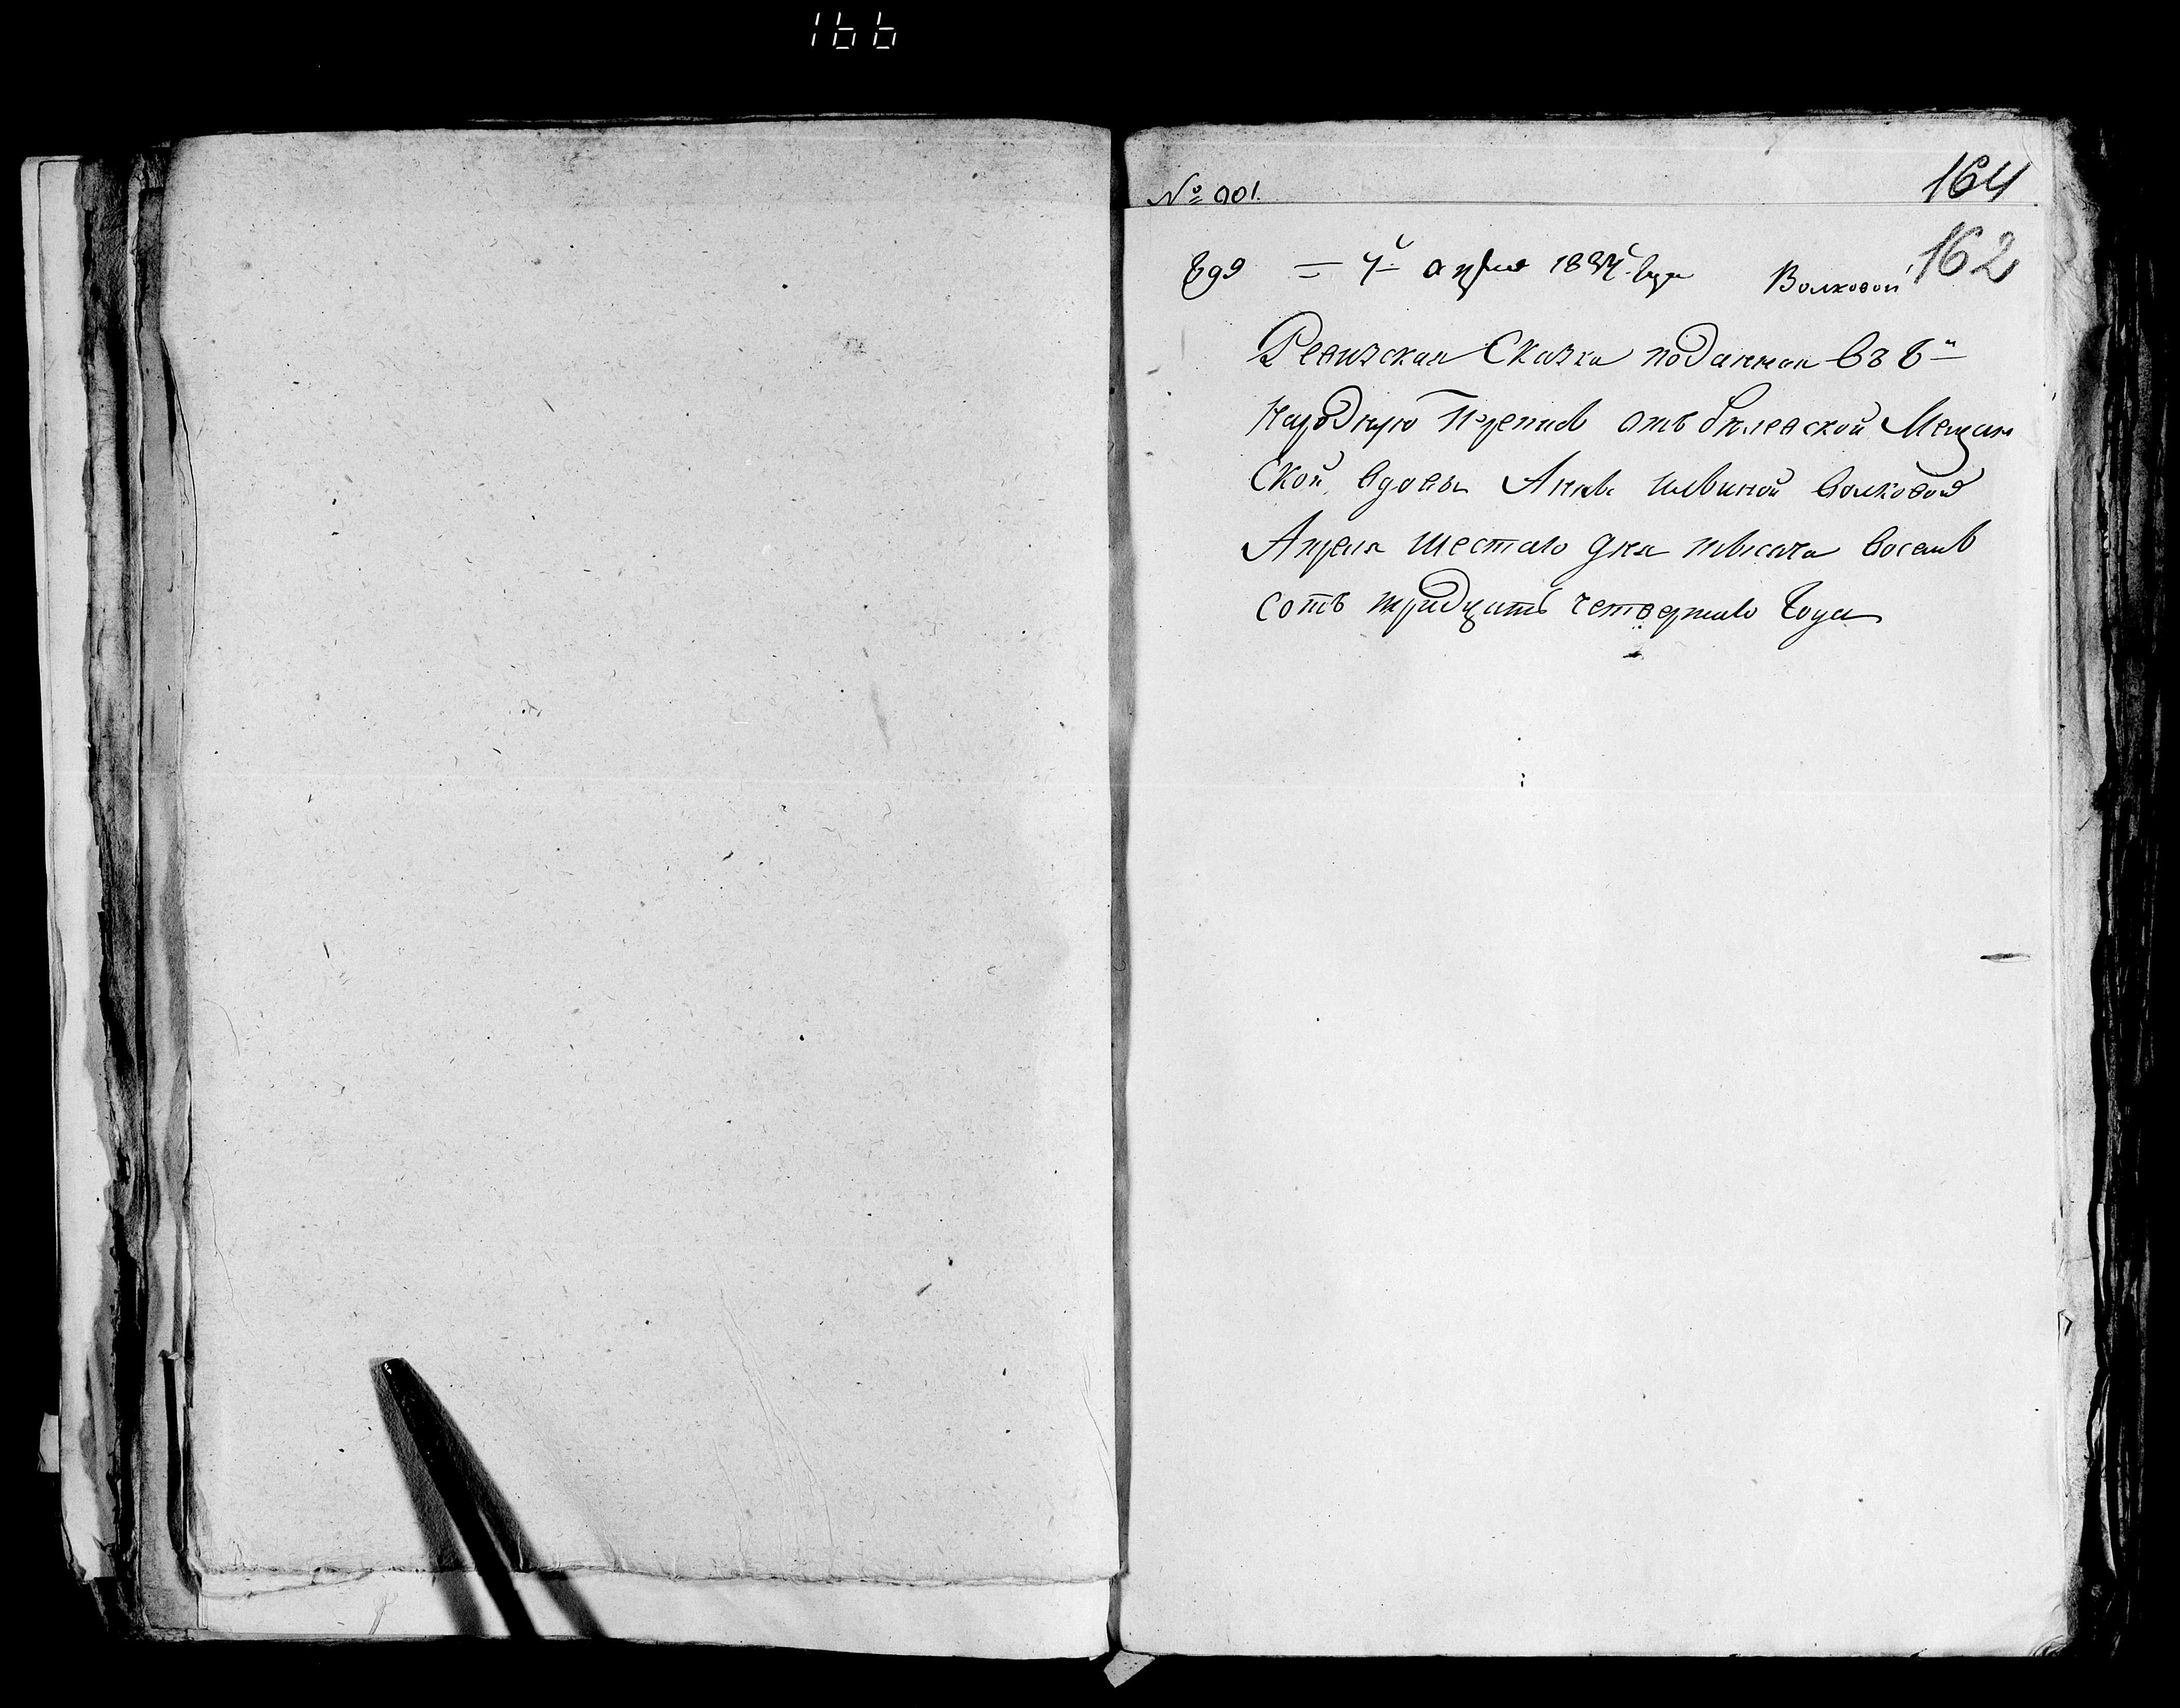 166
№ 901.
164
162
= 4й апреля 1834 года Волковой
Ревизская Сказка поданная въ 8ю
Народную Перепись отъ белевской Мещан
ской вдовы Анны Волковой
Апреля шестаго дня тысяча восемь
сотъ тридцать четвертаго года